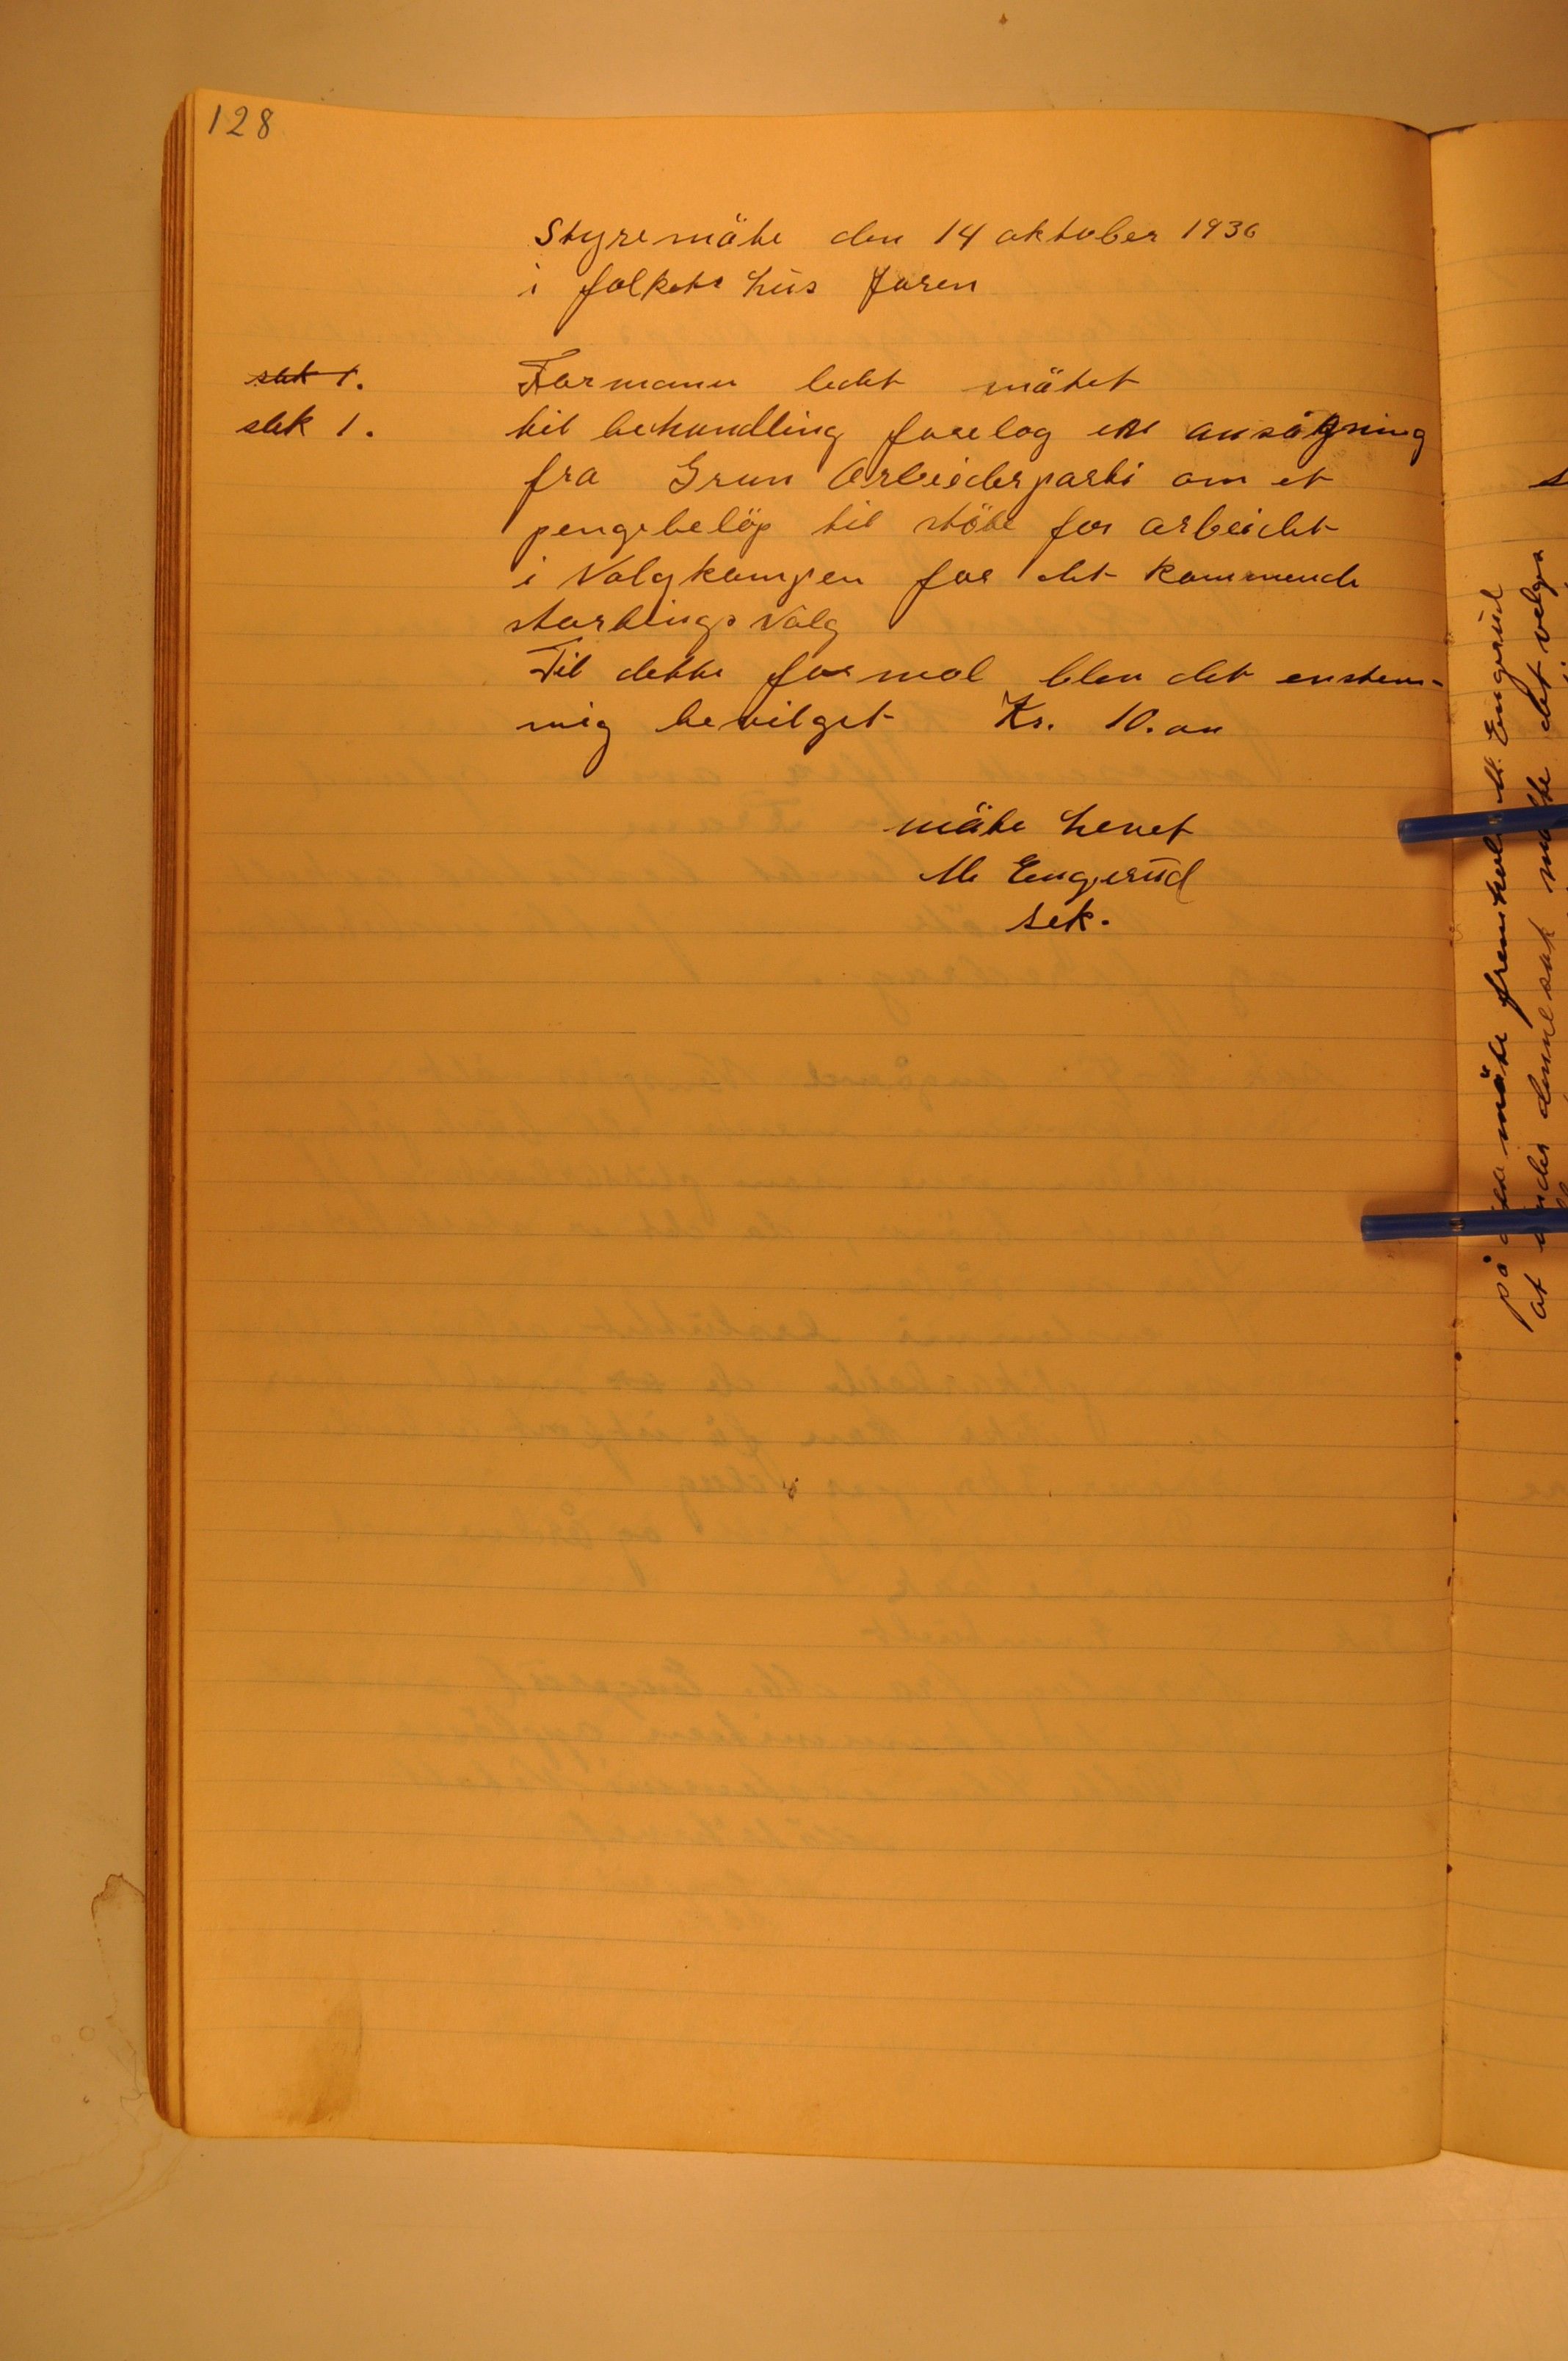 128
Styremöte den 14 oktober 1936
i folkets hus Jaren
sak 1.
Formann ledet mötet
sak 1.
til behandling forelog en ansökning
fra Gran Arbeiderparti om et
pengebelöp til stöte for arbeidet
i Valgkampen for det kommende
stortings valg
Til dette formol blev det enstem-
mig bevilget Kr. 10.00
möte hevet
M Engerud
sek.
möte fremholdt M. Engerud
denne sak måtte det velges